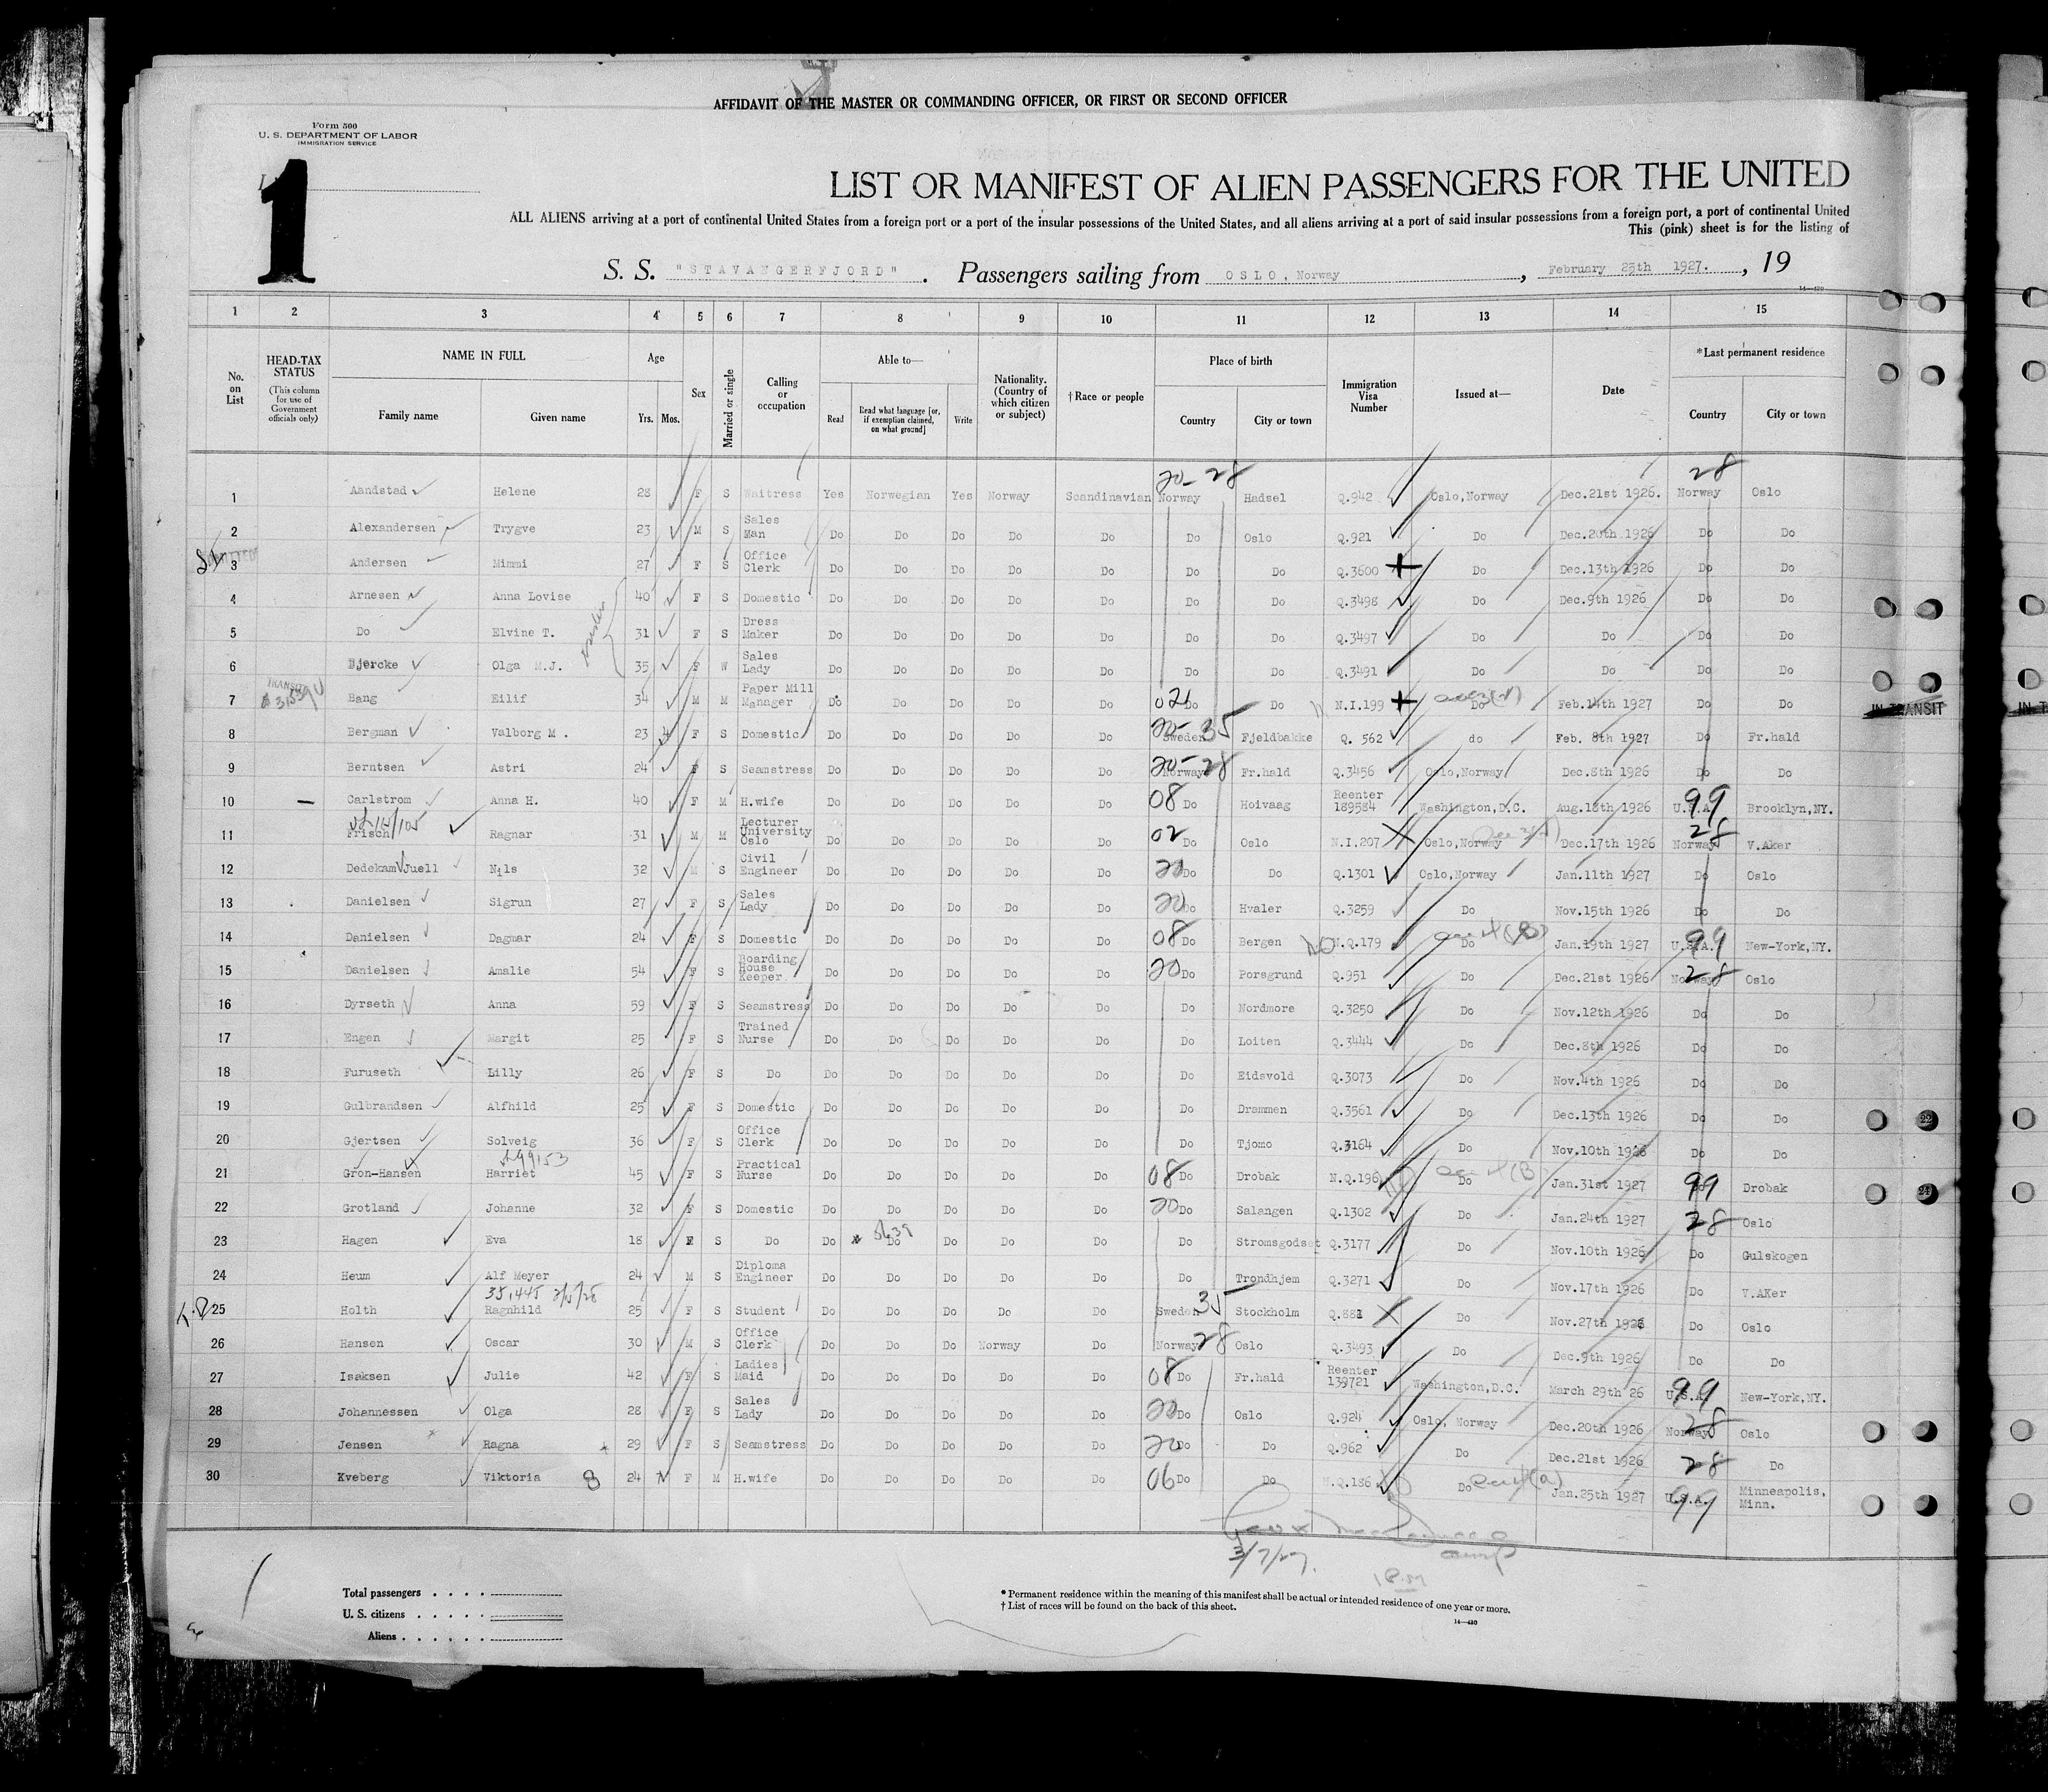 AFFIDAVIT OF THE MASTER OR COMMANDING OFFICER, OR FIRST OR SECOND OFFICER
Form 500
U. S. DEPARTMENT OF LABOR
IMMIGRATION SERVICE
1
LIST OR MANIFEST OF ALIEN PASSENGERS FOR THE UNITED
ALL ALIENS arriving at a port of continental United States from a foreign port or a port of the insular possessions of the United States, and all aliens arriving at a port of said insular possessions from a foreign port, a port of continental United
This (pink) sheet is for the listing of
S. S. "STAVANGERFJORD". Passengers sailing from OSLO, Norway, February 25th 1927., 19
1 2 3 4 5 6 7 8 9 10 11 12 13 14 15
No. on List HEAD-TAX STATUS (This column for use of Government officials only) NAME IN FULL Family name Given name Age Yrs. Mos. Sex Married or single Calling or occupation Able to— Read Read what language [or, if exemption claimed, on what ground] Write Nationality. (Country of which citizen or subject) †Race or people Place of birth Country City or town Immigration Visa Number Issued at— Date *Last permanent residence Country City or town
20-28 28
1 Aandstad Helene 28 F S Waitress Yes Norwegian Yes Norway Scandinavian Norway Hadsel Q.942 Oslo,Norway Dec.21st 1926. Norway Oslo
2 Alexandersen Trygve 23 M S Sales Man Do Do Do Do Do Do Oslo Q.921 Do Dec.20th 1926 Do Do
3 Andersen Mimmi 27 F S Office Clerk Do Do Do Do Do Do Do Q.3600 Do Dec.13th 1926 Do Do
4 Arnesen Anna Lovise 40 F S Domestic Do Do Do Do Do Do Do Q.3498 Do Dec.9th 1926 Do Do
5 Do Elvine T. 31 F S Dress Maker Do Do Do Do Do Do Do Q.3497 Do Do Do Do
6 Bjercke Olga M.J. 35 F W Sales Lady Do Do Do Do Do Do Do Q.3491 Do Do Do Do
TRANSIT
7 Bang Eilif 34 M M Paper Mill Manager Do Do Do Do Do 02 Do Do N.I.199 Do Feb.14th 1927 Do Do IN TRANSIT
8 Bergman Valborg M. 23 4 F S Domestic Do Do Do Do Do 20-35 Sweden Fjeldbakke Q. 562 do Feb. 8th 1927 Do Fr.hald
9 Berntsen Astri 24 F S Seamstress Do Do Do Do Do 20-28 Norway Fr.hald Q.3456 Oslo,Norway Dec.8th 1926 Do Do
10 Carlstrom Anna H. 40 F M H.wife Do Do Do Do Do 08 Do Hoivaag Reenter 189584 Washington,D.C. Aug.18th 1926 U.S.A. 99 Brooklyn,NY.
11 Frisch Ragnar 31 M M Lecturer University Oslo Do Do Do Do Do 02 Do Oslo N.I.207 Oslo,Norway Dec.17th 1926 Norway 28 V.Aker
12 Dedekam Juell Nils 32 M S Civil Engineer Do Do Do Do Do 20 Do Do Q.1301 Oslo,Norway Jan.11th 1927 Do Oslo
13 Danielsen Sigrun 27 F S Sales Lady Do Do Do Do Do 20 Do Hvaler Q.3259 Do Nov.15th 1926 Do Do
14 Danielsen Dagmar 24 F S Domestic Do Do Do Do Do 08 Do Bergen N.Q.179 Do Jan.19th 1927 U.S.A. 99 New-York,NY.
15 Danielsen Amalie 54 F S Boarding House Keeper Do Do Do Do Do 20 Do Porsgrund Q.951 Do Dec.21st 1926 Norway 28 Oslo
16 Dyrseth Anna 59 F S Seamstress Do Do Do Do Do Do Nordmore Q.3250 Do Nov.12th 1926 Do Do
17 Engen Margit 25 F S Trained Nurse Do Do Do Do Do Do Loiten Q.3444 Do Dec.8th 1926 Do Do
18 Furuseth Lilly 26 F S Do Do Do Do Do Do Do Eidsvold Q.3073 Do Nov.4th 1926 Do Do
19 Gulbrandsen Alfhild 25 F S Domestic Do Do Do Do Do Do Drammen Q.3561 Do Dec.13th 1926 Do Do
20 Gjertsen Solveig 36 F S Office Clerk Do Do Do Do Do Do Tjomo Q.3164 Do Nov.10th 1926 Do Do
21 Gron-Hansen Harriet 45 F S Practical Nurse Do Do Do Do Do 08 Do Drobak N.Q.196 Do Jan.31st 1927 Do 99 Drobak
22 Grotland Johanne 32 F S Domestic Do Do Do Do Do 20 Do Salangen Q.1302 Do Jan.24th 1927 28 Oslo
23 Hagen Eva 18 F S Do Do Do Do Do Do Do Stromsgodset Q.3177 Do Nov.10th 1926 Do Gulskogen
24 Heum Alf Meyer 24 M S Diploma Engineer Do Do Do Do Do Do Trondhjem Q.3271 Do Nov.17th 1926 Do V.AKer
25 Holth Ragnhild 25 F S Student Do Do Do Do Do Sweden 35 Stockholm Do Nov.27th 1926 Do Oslo
26 Hansen Oscar 30 M S Office Clerk Do Do Do Norway Do Norway 28 Oslo Q.3493 Do Dec.9th 1926 Do Do
27 Isaksen Julie 42 F S Ladies Maid Do Do Do Do Do 08 Do Fr.hald Reenter 139721 Washington,D.C. March 29th 26 U.S.A. 99 New-York,NY.
28 Johannessen Olga 28 F S Sales Lady Do Do Do Do Do 20 Do Oslo Q.924 Oslo, Norway Dec.20th 1926 Norway 28 Oslo
29 Jensen Ragna 29 F S Seamstress Do Do Do Do Do 20 Do Do Q.962 Do Dec.21st 1926 28 Do
30 Kveberg Viktoria 8 24 F M H.wife Do Do Do Do Do 06 Do Do N.Q.186 Do Jan.25th 1927 U.S.A. 99 Minneapolis, Minn.
3/7/27.
Total passengers
U. S. citizens
Aliens
* Permanent residence within the meaning of this manifest shall be actual or intended residence of one year or more.
† List of races will be found on the back of this sheet.